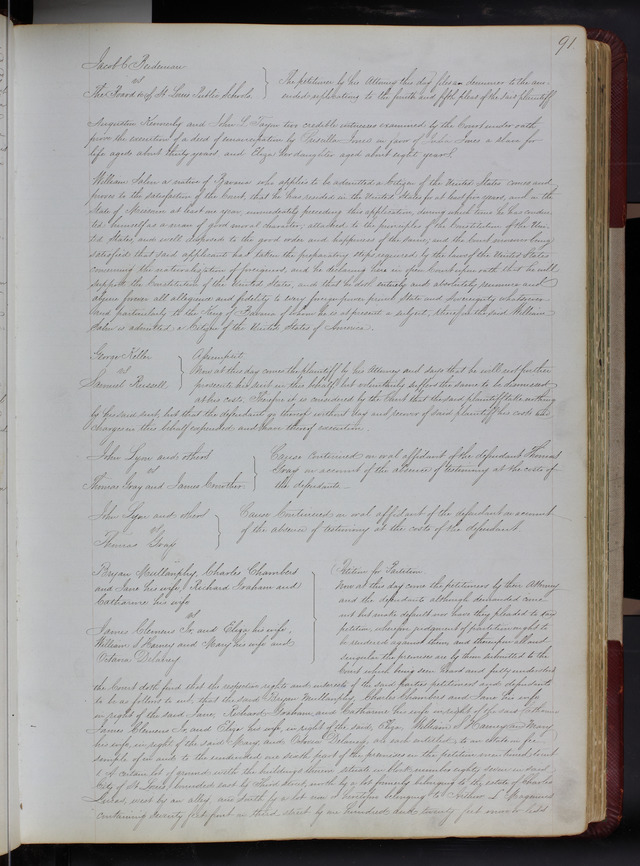 91
Jacob C Reedeman
vs
The Board of St Louis Public Schools
The petitioner by his Attorney this day files a demurrer to the am-
ended replication to the fourth and fifth pleas of the said plaintiff
Augustin Kennerly and John L Taylor two credible witnesses examined by the Court under oath
prove the execution of a deed of emancipation by Priscilla Jones in favor of Julia Jones a slave for
life aged about thirty years and Eliza her daughter aged about eight years
William Salen a native of Bavaria who applies to be admitted a Citizen of the United States comes and
proves to the satisfaction of the Court, that he has resided in the United States for at least five years, and in the
State of Missouri at least one year, immediately preceding this application, during which time he has conduc-
ted himself as a man of good moral character, attached to the principles of the Constitution of the Uni-
ted States, and well disposed to the good order and happiness of the same, and the Court moreover being
satisfied that said applicant has taken the preparatory steps required by the laws of the United States
concerning the naturalization of foreigners, and he declaring here in open Court upon oath that he will
support the Constitution of the United States, and that he doth entirely and absolutely renounce and
abjure forever all allegiance and fidelity to every foreign power prince State and Sovereignty whatsoever
and particularly to the King of Bavaria of whom he is at present a subject, therefore the said William
Salen is admitted a Citizen of the United States of America.
George Keller
vs
Samuel Russell
Assumpsit,
Now at this day comes the plaintiff by his Attorney and says that he will not further
prosecute his suit in this behalf but voluntarily suffers the same to be dismissed
at his costs. Therefore it is considered by the Court that the said plaintiff take nothing
by his said suit, but that the defendant go thereof without day and recover of said plaintiff his costs and
charges in this behalf expended and have thereof execution.
John Lyon and others
vs
Thomas Gray and James Crowther
Cause continued on oral affidavit of the defendant Thomas
Gray on account of the absence of testimony at the costs of
the defendants
John Lyon and others
vs
Thomas Gray
Cause Continued on oral affidavit of the defendant on account
of the absence of testimony at the costs of the defendant
Bryan Mullanphy, Charles Chambers
and Jane his wife, Richard Graham and
Catharine his wife
vs
James Clemens Jr, and Eliza his wife,
William S Harney and Mary his wife and
Octavia Delany
Petition for Partition.
Now at this day come the petitioners by their Attorney
and the defendants although demanded come
not but make default nor have they pleaded to said
petition, wherefore judgment of partition ought to
be rendered against them, and thereupon all and
singular the premises are by them submitted to the
Court which being seen heard and fully understood
the Court doth find that the respective rights and interests of the said parties petitioners and defendants
to be as follows to wit, that the said Bryan Mullanphy, Charles Chambers and Jane his wife
in right of the said Jane, Richard Graham, and Catharine his wife in right of the said Catharine
James Clemens Jr, and Eliza his wife, in right of the said Eliza, William S Harney and Mary
his wife, in right of the said Mary, and Octavia Delany, are each entitled to an estate in fee
simple of in and to the undivided one sixth part of the premises in the petition mentioned to wit
1. A certain lot of ground with the buildings thereon situate in block number eighty seven in said
City of St Louis, bounded east by third street, north by a lot formerly belonging to the estate of Charles
west by an alley, and south by a lot now or heretofore belonging to Arthur L Magenis
containing seventy feet front on third street by one hundred and twenty feet more or less